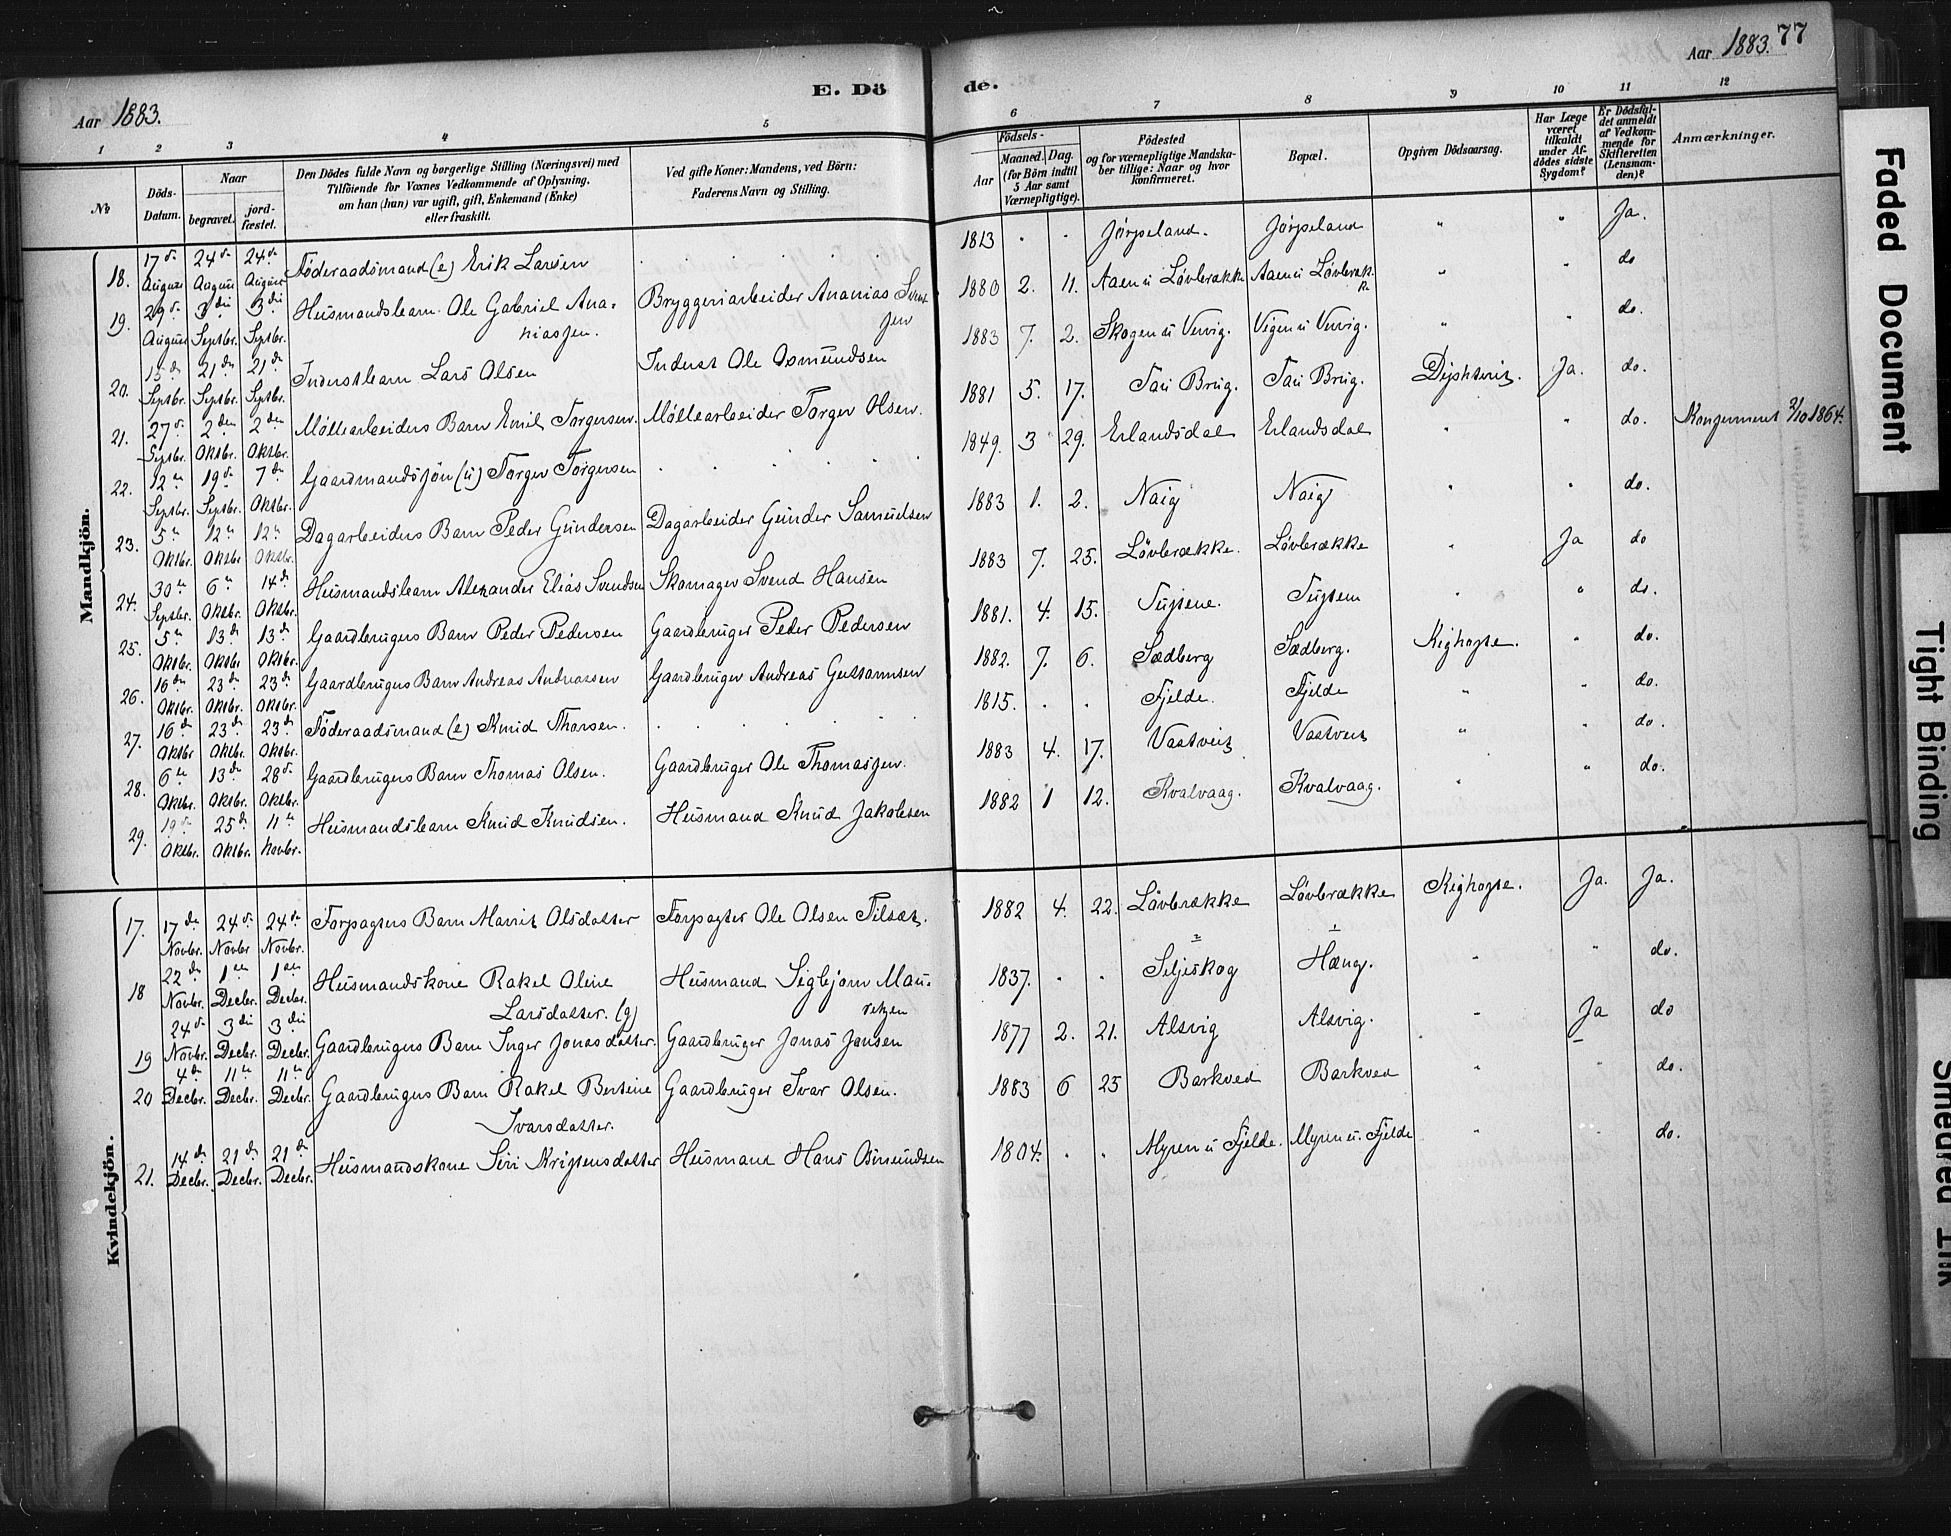 Aar 1883.
E. Dö
de.
Aar 1883. 77
1 2 3 4 5
6 7 8 9 10 11 12
№
Döds-Datum.
Naar
begravet.
jordfæstet.
Den Dödes fulde Navn og borgerlige Stilling (Næringsvei) med
Tilföiende for Voxnes Vedkommende af Oplysning,
om han (hun) var ugift, gift, Enkemand (Enke)
eller fraskilt.
Ved gifte Koner: Mandens, ved Börn:
Faderens Navn og Stilling.
Födsels-
Aar
Maaned. Dag.
(for Börn indtil
5 Aar samt
Værnepligtige).
Födested
og for værnepligtige Mandska-
ber tillige: Naar og hvor
konfirmeret.
Bopæl.
Opgiven Dödsaarsag.
Har Læge
været
tilkaldt
under Af-
dödes sidste
Sygdom?
Er Dödsfal-
det anmeldt
af Vedkom-
mende for
Skifteretten
(Lensman-
den)?
Anmærkninger.
Mandkjön.
18. 17de August 24de August 24de August Föderaadsmand (e) Erik Larsen 1813 Jörpeland. Jörpeland " " Ja.
19. 29de August 3die Septbr. 3die Septbr. Husmandsbarn Ole Gabriel Ana-
niassen. Bryggeriarbeider Ananias Svend
sen 1880 2. 11. Aaen u Løvbrække Aaen u Løvbræk-
ke " " do
20. 15de Septbr. 21de Septbr. 21de Septbr. Inderstbarn Lars Olsen Inderst Ole Osmundsen 1883 7. 2. Skogen u Vervig. Vigen u Vervig. " " do.
21. 27de Septbr. 2den Oktbr. 2den Oktbr. Møllearbeiders Barn Emil Torgersen. Møllearbeider Torger Olsen. 1881 5. 17. Tau Brug. Tau Brug. Diphterit. Ja. do.
22. 12te Septbr. 19de Septbr. 7de Oktbr. Gaardmandssøn (u) Torger Torgersen 1849. 3 29. Erlandsdal Erlandsdal " " do. Konfirmert 2/10 1864.
23. 5te Oktbr. 12te Oktbr 12te Oktbr. Dagarbeiders Barn Peder Gundersen Dagarbeider Gunder Samuelsen 1883 1. 2. Naig Naig " " do.
24. 30te Septbr. 6te Oktbr. 14de Oktbr. Husmandsbarn Alexander Elias Svendsen Skomager Svend Hansen 1883 7. 25. Løvbrække. Løvbrække " Ja do
25. 5te Oktbr. 13de Oktbr 13de Oktbr. Gaardbrugers Barn Peder Pedersen Gaardbruger Peder Pedersen 1881. 4. 15. " " do.
26. 16de Oktbr. 23de Oktbr. 23de Oktbr. Gaardbrugers Barn Andreas Andreassen Gaardbruger Andreas 1882. 7. 6. Sædberg Sædberg. Kighoste. " do.
27. 16de Oktbr 23de Oktbr. 23de Oktbr. Föderaadsmand (e) Knud Thorsen. 1815. Fjelde. Fjelde " " do.
28. 6te Oktbr. 13de Oktbr. 28de Oktbr. Gaardbrugers Barn Thomas Olsen. Gaardbruger Ole Thomassen. 1883 4. 17. Vastveit Vastveit " " do.
29. 19de Oktbr. 25de Oktbr. 11te Novbr. Husmandsbarn Knud Knudsen. Husmand Knud Jakobsen 1882 1 12. Kvalvaag. Kvalvaag. " " do.
Kvindekjön.
17. 17de Novbr. 24de Novbr 24de Novbr. Forpagters Barn Marrit Olsdatter Forpagter Ole Olsen Tiltæt. 1882 4. 22. Løvbrække Løvbrække Kighoste. Ja. Ja.
18 22de Novbr. 1ste Decbr. 1ste Decbr. Husmandskone Rakel Oline
Larsdatter. (g) Husmand Sigbjørn Mau-
ritzen 1837. Seljeskog Hæng. " " do.
19 24de Novbr. 3die Decbr. 3die Decbr. Gaardbrugers Barn Inger Jonasdatter. Gaardbruger Jonas Jonsen 1877 2. 21. Alsvig Alsvig. " Ja do
20 4de Decbr. 11te Decbr. 11te Decbr. Gaardbrugers Barn Rakel Bertine
Ivarsdatter. Gaardbruger Ivar Olsen. 1883 6 25 Barkved Barkved " " do.
21. 14de Decbr. 21de Decbr. 21de Decbr. Husmandskone Siri Kristensdatter Husmand Hans Osmundsen 1804. Myren u Fjelde. Myren u. Fjelde " " do.
Faded Document
Tight Binding
Smeared Ink